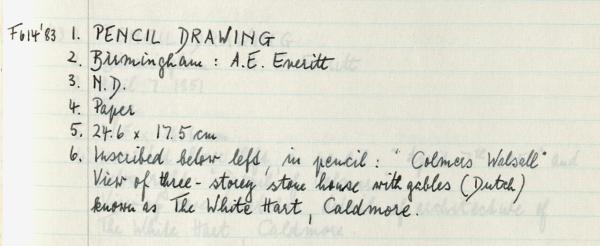 F614'83 1. PENCIL DRAWING
2. Birmingham: A.E. Everitt
3. N.D.
4. Paper
5. 24.6 x 17.5 cm
6. Inscribed below left, in pencil: "Colmers Walsall"
View of three-storey stone house with gables (Dutch)
known as The White Hart, Caldmore.